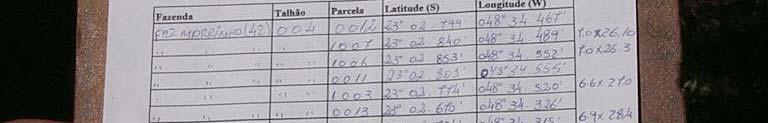 Fazenda Talhão Parcela Latitude (S) Longitude (W)
Faz MORRINHO (42) 004 0012 23° 02. 799' 048° 34. 467'
" " 1007 23° 02 840' 048° 34. 489' 7.0 x 26.10
" " 1006 23° 02 853' 048° 34. 552' 7.0 x 26.3
" " 0011 23° 02 801' 048° 34 555'
" " 1003 23° 02. 774' 048° 34. 520' 6.6 x 27.0
" " 0013 23° 02. 670' 048° 34. 326' 6.9 x 28.4